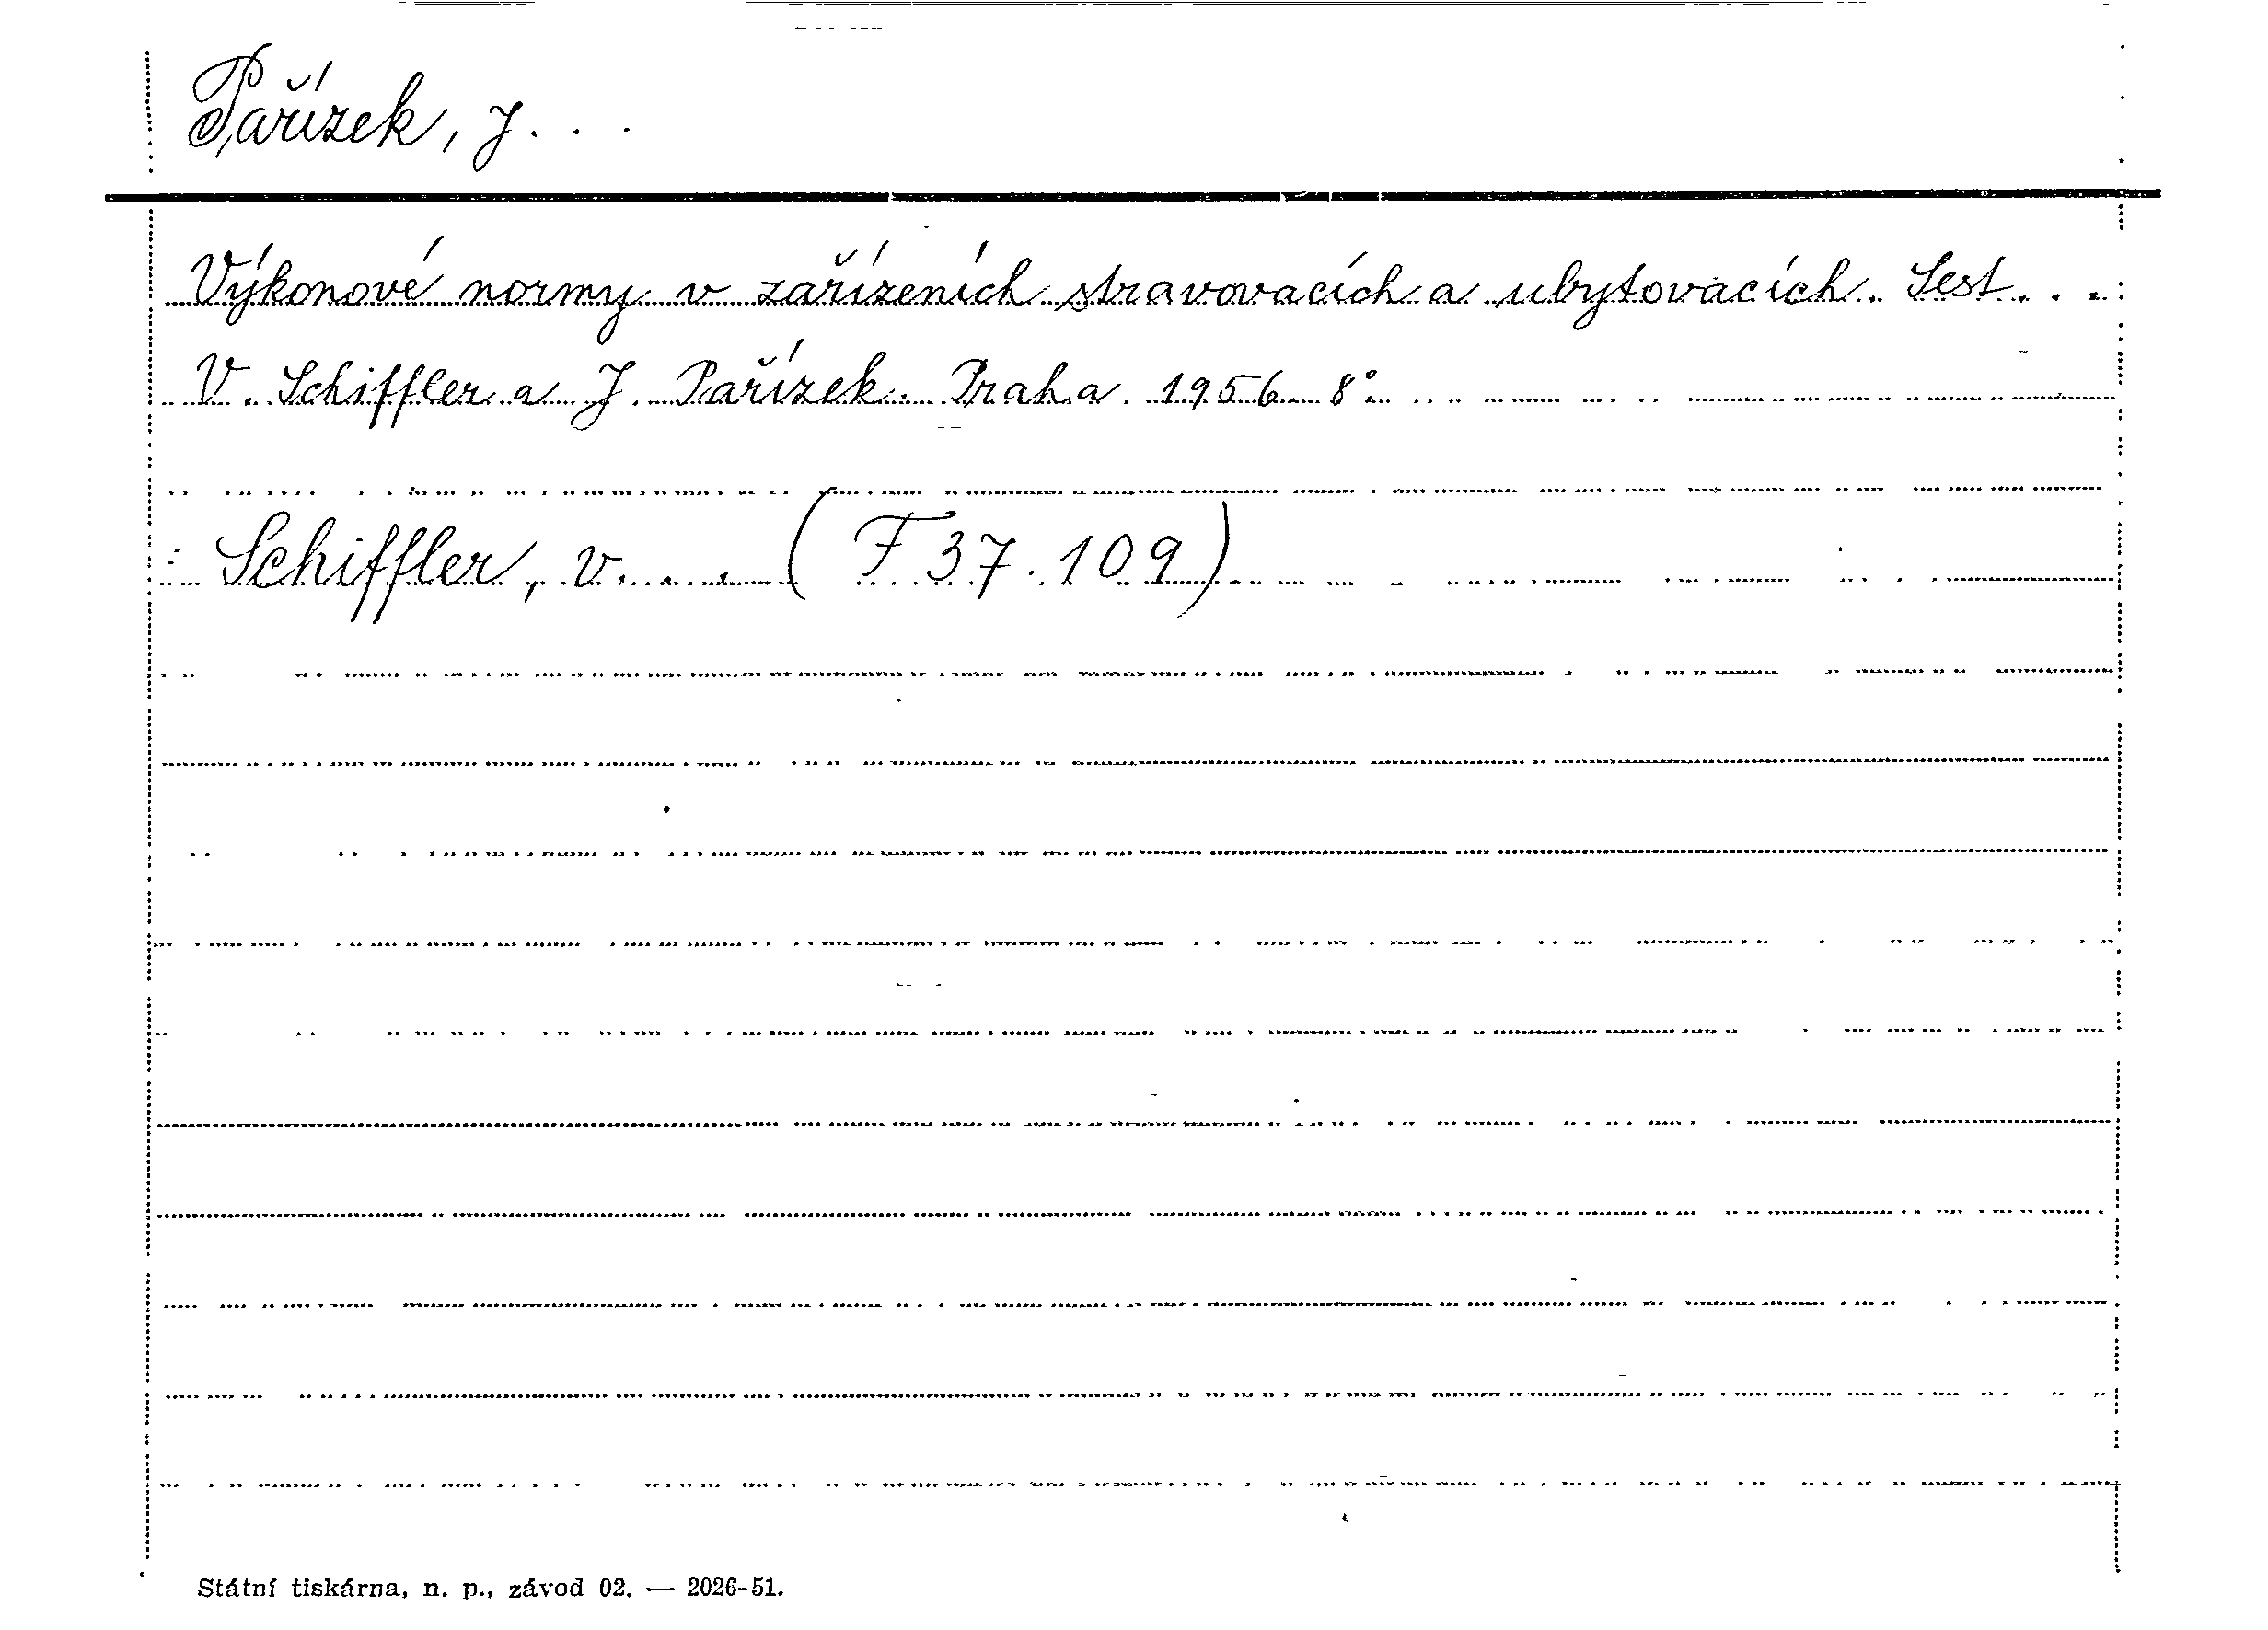 Pařízek, J...
Výkonové normy v zařízeních stravovacích a ubytovacích. Sest...
V. Schiffler a J. Pařízek. Praha. 1956. 8°.
: Schiffler, V.... (F 37.109)
Státní tiskárna, n. p., závod 02. — 2026-51.